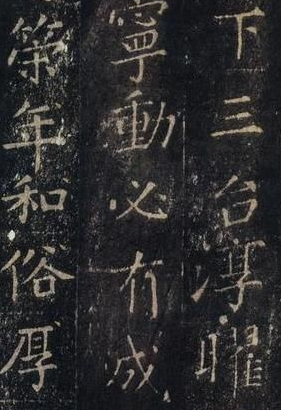 下三台淳曜
寧動必有成
策年和俗厚